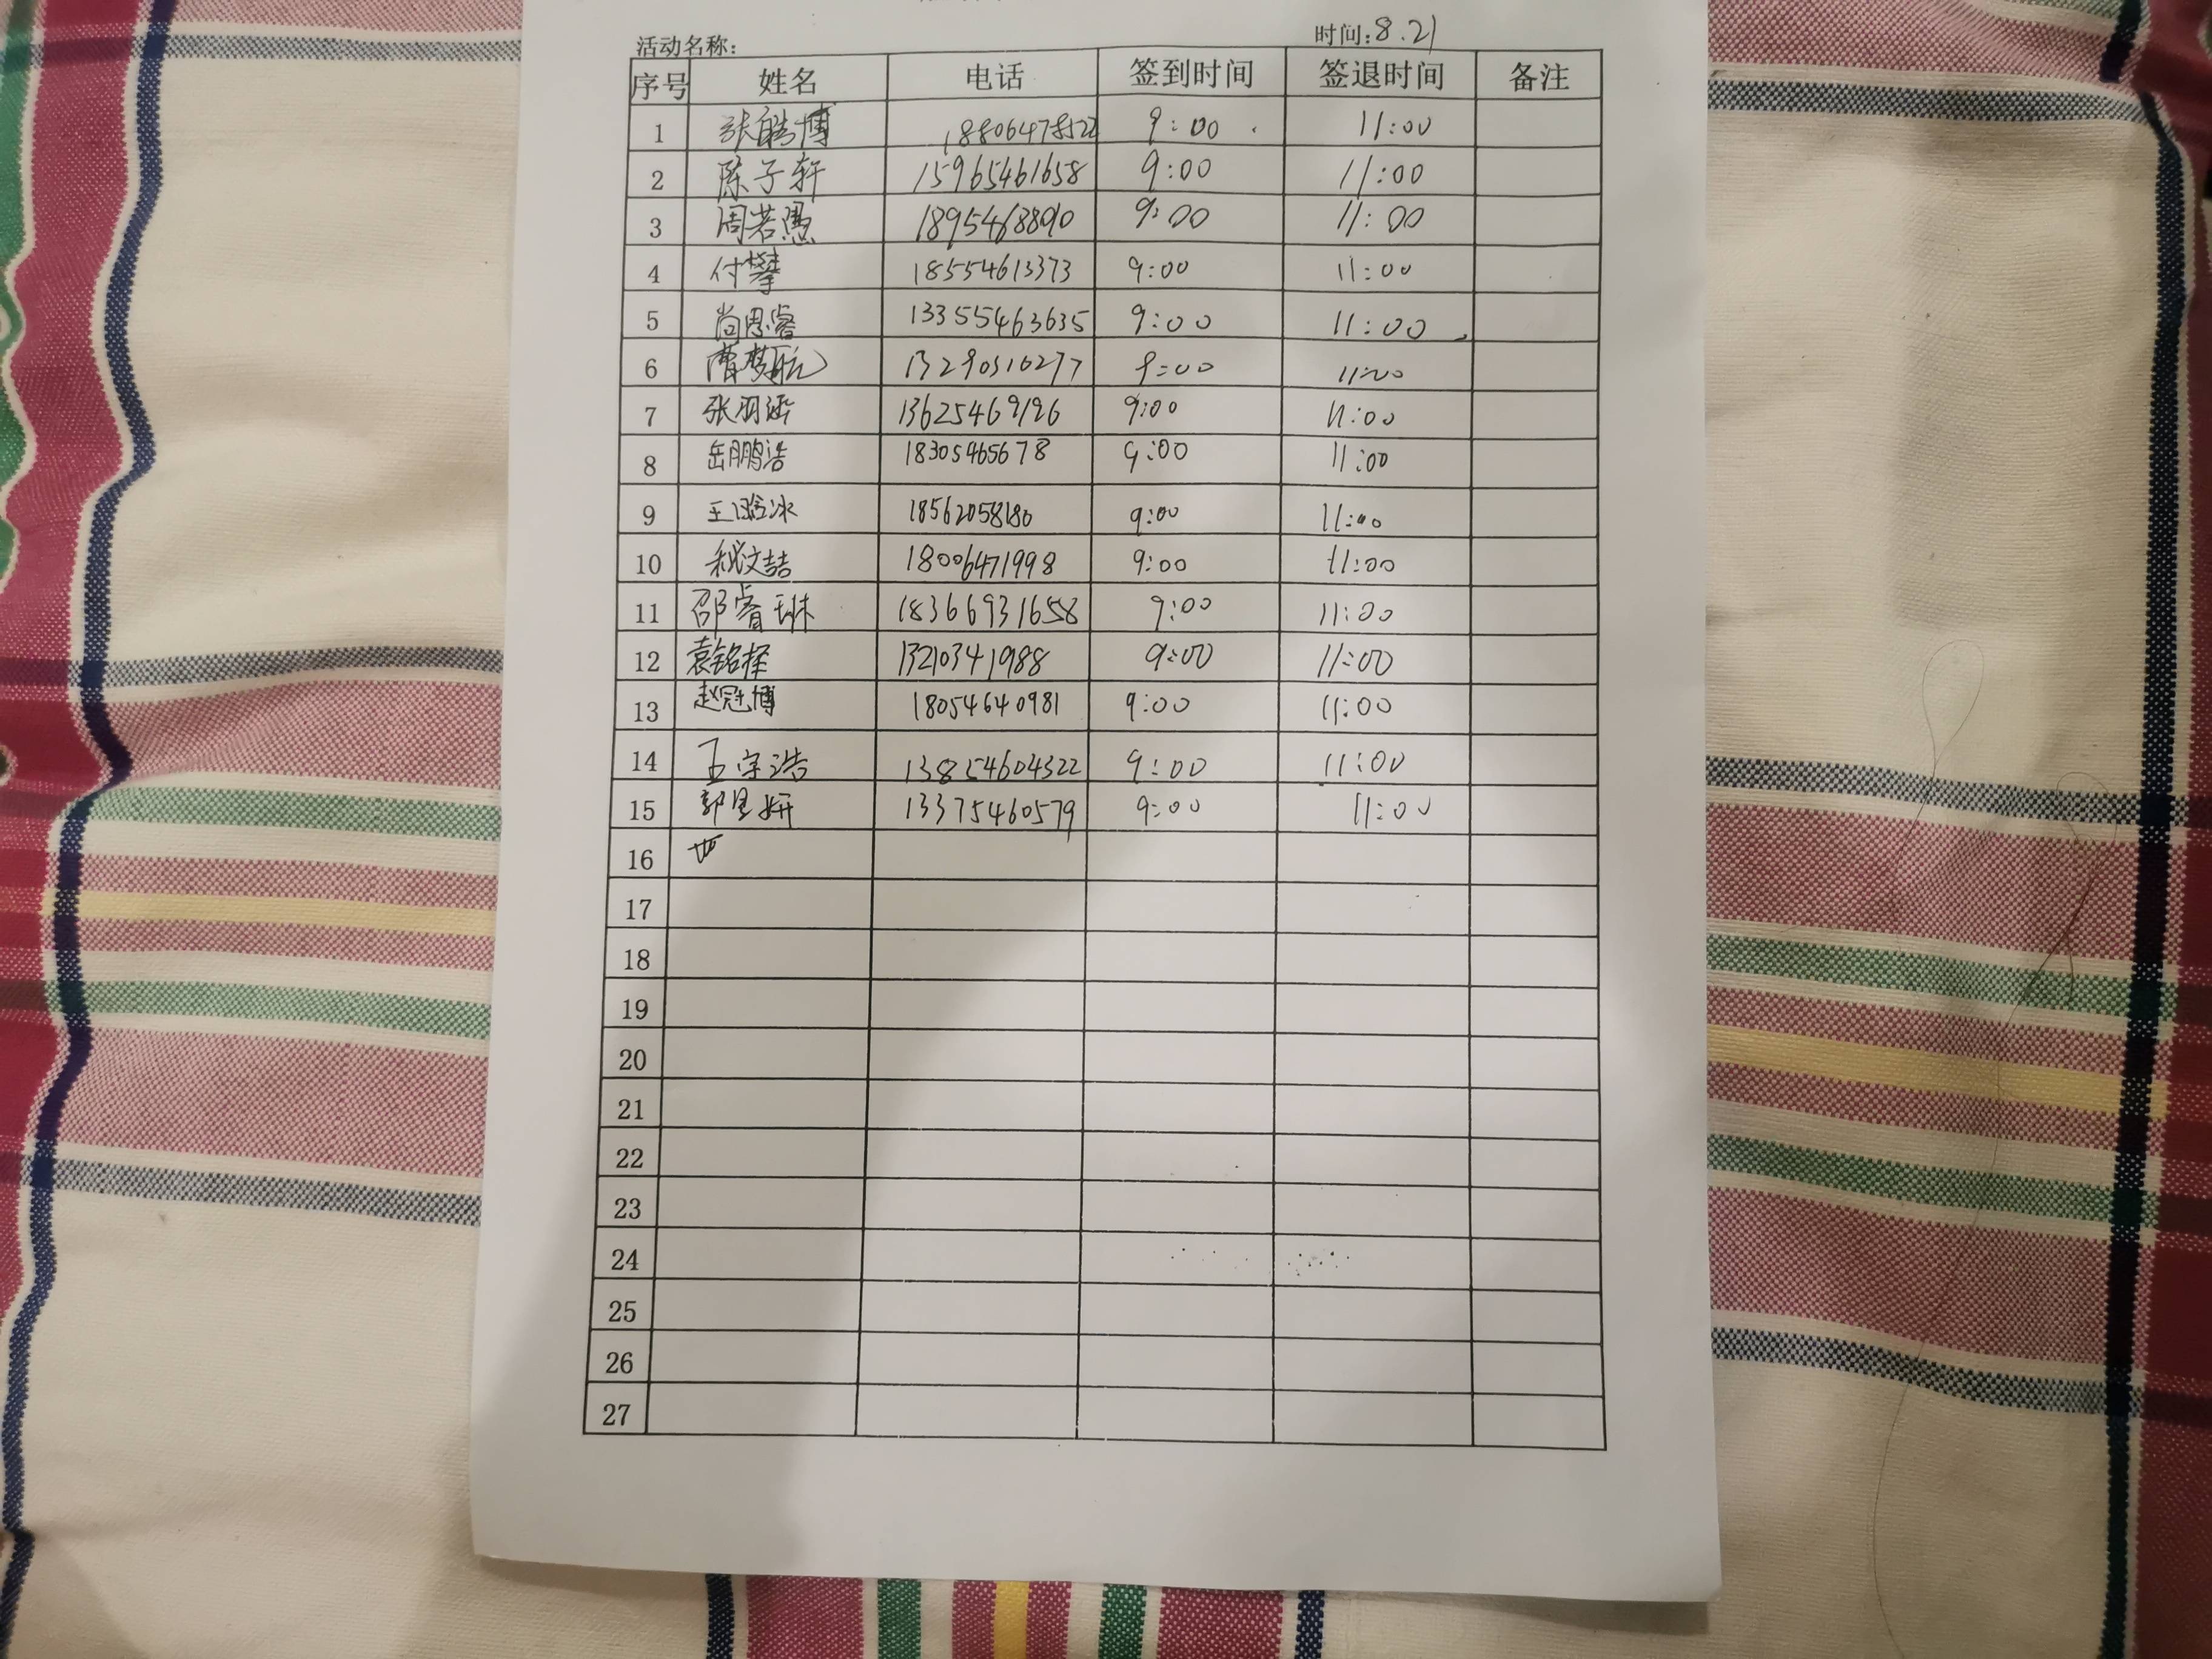 活动名称： 时间：8.21
序号 姓名 电话 签到时间 签退时间 备注
1 张皓博 18806478522 9:00 11:00
2 陈子轩 15965461658 9:00 11:00
3 周若愚 9:00 11:00
4 付攀 18554613373 9:00 11:00
5 尚恩睿 13355463635 9:00 11:00
6 曹梦航 9:00 11:00
7 张羽涵 13625469196 9:00 11:00
8 岳鹏浩 18305465678 9:00 11:00
9 王晗冰 18562058180 9:00 11:00
10 秘文喆 18006471998 9:00 11:00
11 邵睿琳 18366931658 9:00 11:00
12 袁铭择 13210341988 9:00 11:00
13 赵冠博 18054640981 9:00 11:00
14 王宇浩 13854604322 9:00 11:00
15 郭昱妍 13375460579 9:00 11:00
16
17
18
19
20
21
22
23
24
25
26
27